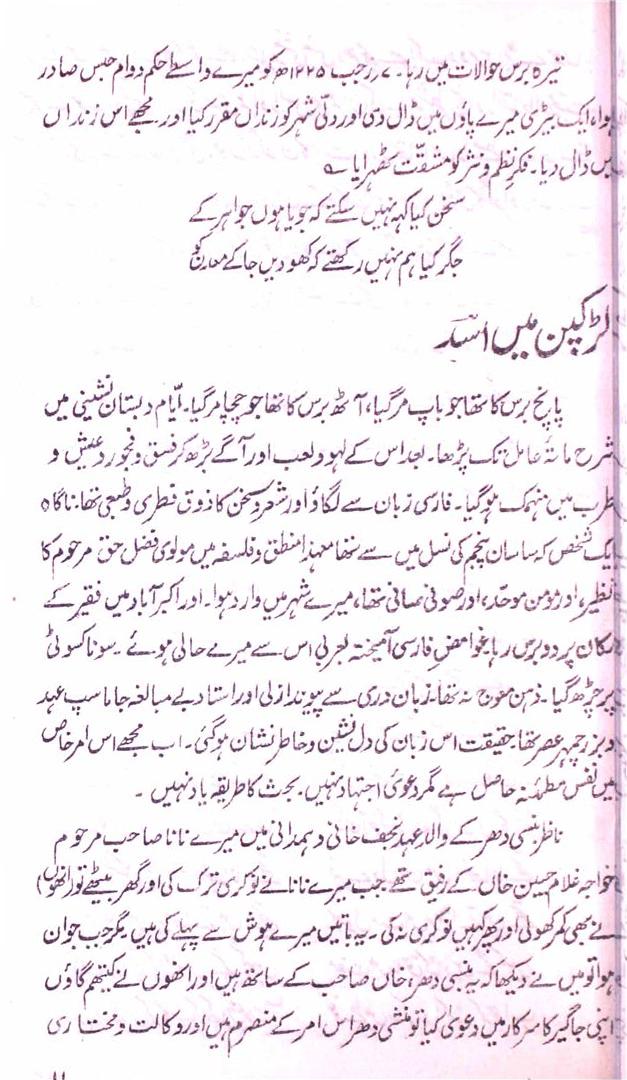 تیرہ برس حوالات میں رہا۔ ۷؍ رجب ۱۲۲۵ھ کو میرے واسطے حکم دوام حبس صادر
ہوا، ایک بیڑی میرے پاؤں میں ڈال دی اور دلّی شہر کو زنداں مقرر کیا اور مجھے اس زنداں
میں ڈال دیا۔ فکرِ نظم و نثر کو مشقّت ٹھہرایا ؎
سخن کیا کہہ نہیں سکتے کہ جویا ہوں جواہر کے
جگر کیا ہم نہیں رکھتے کہ کھودیں جا کے معادن کو
لڑکپن میں اسدؔ
پانچ برس کا تھا جو باپ مر گیا، آٹھ برس کا تھا جو چچا مر گیا۔ ایّام دبستاں نشینی میں
شرح مائۃ عامل تک پڑھا۔ بعد اس کے لہو و لعب اور آگے بڑھ کر فسق و فجور و عیش و
طرب میں منہمک ہو گیا۔ فارسی زبان سے لگاؤ اور شعر و سخن کا ذوق فطری و طبعی تھا۔ ناگاہ
ایک شخص کہ ساسان پنجم کی نسل میں سے تھا معہذا منطق و فلسفہ میں مولوی فضل حق مرحوم کا
نظیر، اور مومن موحّد، اور صوفی صافی تھا، میرے شہر میں وارد ہوا۔ اور اکبر آباد میں فقیر کے
مکان پر دو برس رہا، غوامضِ فارسی آمیختہ بعربی اس سے میرے حالی ہوئے۔ سونا کسوٹی
پر چڑھ گیا۔ ذہن معوج نہ تھا۔ زبان دری سے پیوند ازلی اور استاد بے مبالغہ جاماسپ عہد
و بزرجمہر عصر تھا۔ حقیقت اس زبان کی دل نشین و خاطر نشان ہو گئی۔ اب مجھے اس امر خاص
میں نفس مطمئنہ حاصل ہے مگر دعویٰ اجتہاد نہیں۔ بحث کا طریقہ یاد نہیں۔
ناظر بنسی دھر کے والد عہد نجف خانی و ہمدانی میں میرے نانا صاحب مرحوم
خواجہ غلام حسین خاں کے رفیق تھے جب میرے نانا نے نوکری ترک کی اور گھر بیٹھے تو (انھوں)
نے بھی کمر کھولی اور پھر کہیں نوکری نہ کی۔ یہ باتیں میرے ہوش سے پہلے کی ہیں۔ مگر جب جوان
ہوا تو میں نے دیکھا کہ یہ بنسی دھر، خاں صاحب کے ساتھ ہیں اور انھوں نے کیتھم گاؤں
اپنی جاگیر کا سرکار میں دعویٰ کیا تو منشی دھر اس امر کے منصرم ہیں اور وکالت و مختاری